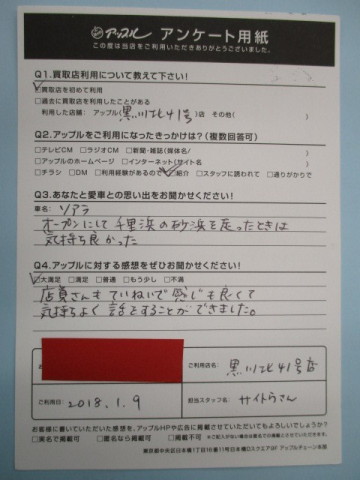 アップル アンケート用紙
この度は当店をご利用いただきありがとうございました。
Q1.買取店利用について教えて下さい!
□買取店を初めて利用
□過去に買取店を利用したことがある
利用した店舗:アップル(黒川北41号)店 その他( )
Q2.アップルをご利用になったきっかけは?(複数回答可)
□テレビCM □ラジオCM □新聞・雑誌(媒体名/ )
□アップルのホームページ □インターネット(サイト名 )
□チラシ □DM □利用経験があるので □紹介 □スタッフに誘われて □通りがかりで
Q3.あなたと愛車との思い出をお聞かせください!
車名:ソアラ
オープンにして千里浜の砂浜を走ったときは
気持ち良かった
Q4.アップルに対する感想をぜひお聞かせください!
□大満足 □満足 □普通 □もう少し □不満
店員さんもていねいで感じも良くて
気持ちよく話をすることができました。
お
ご利用店名:黒川北41号店
ご利用日:2018.1.9
担当スタッフ名:サイトウさん
お客様に書いていただいた感想を、アップルHPや広告に掲載させていただいてもよろしいでしょうか?
□実名で掲載可 □匿名なら掲載可 □掲載不可
東京都中央区日本橋1丁目16番11号日本橋DスクエアSF アップルチェーン本部